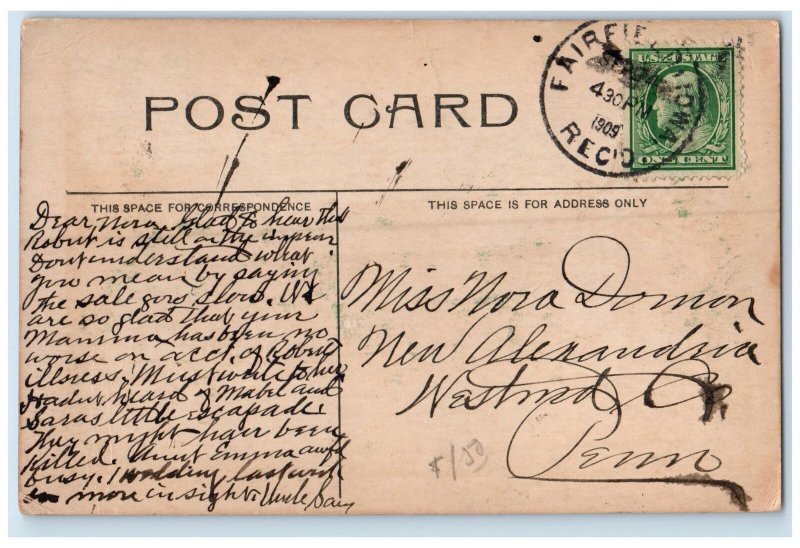 POST CARD
FAIRFIELD IOWA
430 PM
1909
REC'D
U.S. POSTAGE
ONE CENT
THIS SPACE FOR CORRESPONDENCE
THIS SPACE IS FOR ADDRESS ONLY
Dear Nora, Glad to hear that
Robert is still on the
Dont understand what
you mean by saying
the sale goes slow. We
are so glad that your
Mamma has been no
worse on acct. of Robert
illness. Must write to her
Hadn't heard of Mabel and
Saras little escapade.
They might have been
killed. Aunt Emma awfl
busy. 1 wedding last week
more in sight Uncle
Miss Nora Domon
New Alexandria
Westmd. Co.
Penn